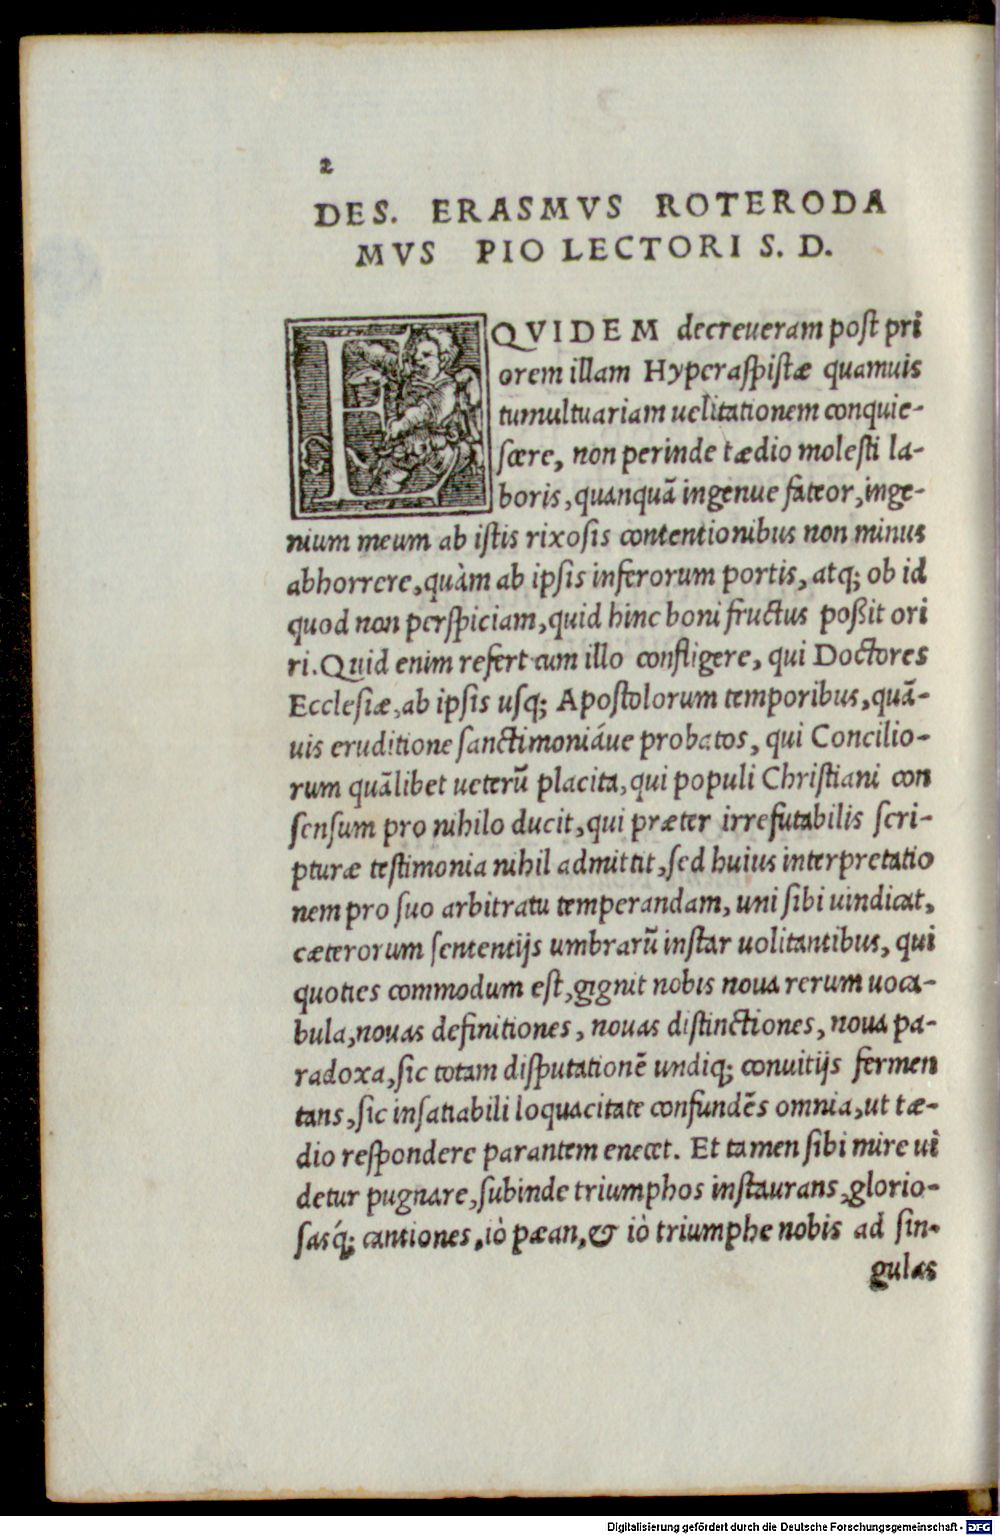 2
DES. ERASMVS ROTERODA
MVS PIO LECTORI S. D.
EQVIDEM decreueram post pri
orem illam Hyperaspistæ quamuis
tumultuariam uelitationem conquie-
scere, non perinde tædio molesti la-
boris, quanquã ingenue fateor, inge-
nium meum ab istis rixosis contentionibus non minus
abhorrere, quàm ab ipsis inferorum portis, atq; ob id
quod non perspiciam, quid hinc boni fructus poßit ori
ri. Quid enim refert cum illo confligere, qui Doctores
Ecclesiæ, ab ipsis usq; Apostolorum temporibus, quã-
uis eruditione sanctimoniáue probatos, qui Concilio-
rum quãlibet ueterũ placita, qui populi Christiani con
sensum pro nihilo ducit, qui præter irrefutabilis scri-
pturæ testimonia nihil admittit, sed huius interpretatio
nem pro suo arbitratu temperandam, uni sibi uindicat,
cæterorum sententijs umbrarũ instar uolitantibus, qui
quoties commodum est, gignit nobis noua rerum uoca-
bula, nouas definitiones, nouas distinctiones, noua pa-
radoxa, sic totam disputationẽ undiq; conuitijs fermen
tans, sic insatiabili loquacitate confundẽs omnia, ut tæ-
dio respondere parantem enecet. Et tamen sibi mire ui
detur pugnare, subinde triumphos instaurans, glorio-
sasq́; cantiones, iò pæan, & iò triumphe nobis ad sin-
gulas
Digitalisierung gefördert durch die Deutsche Forschungsgemeinschaft - DFG